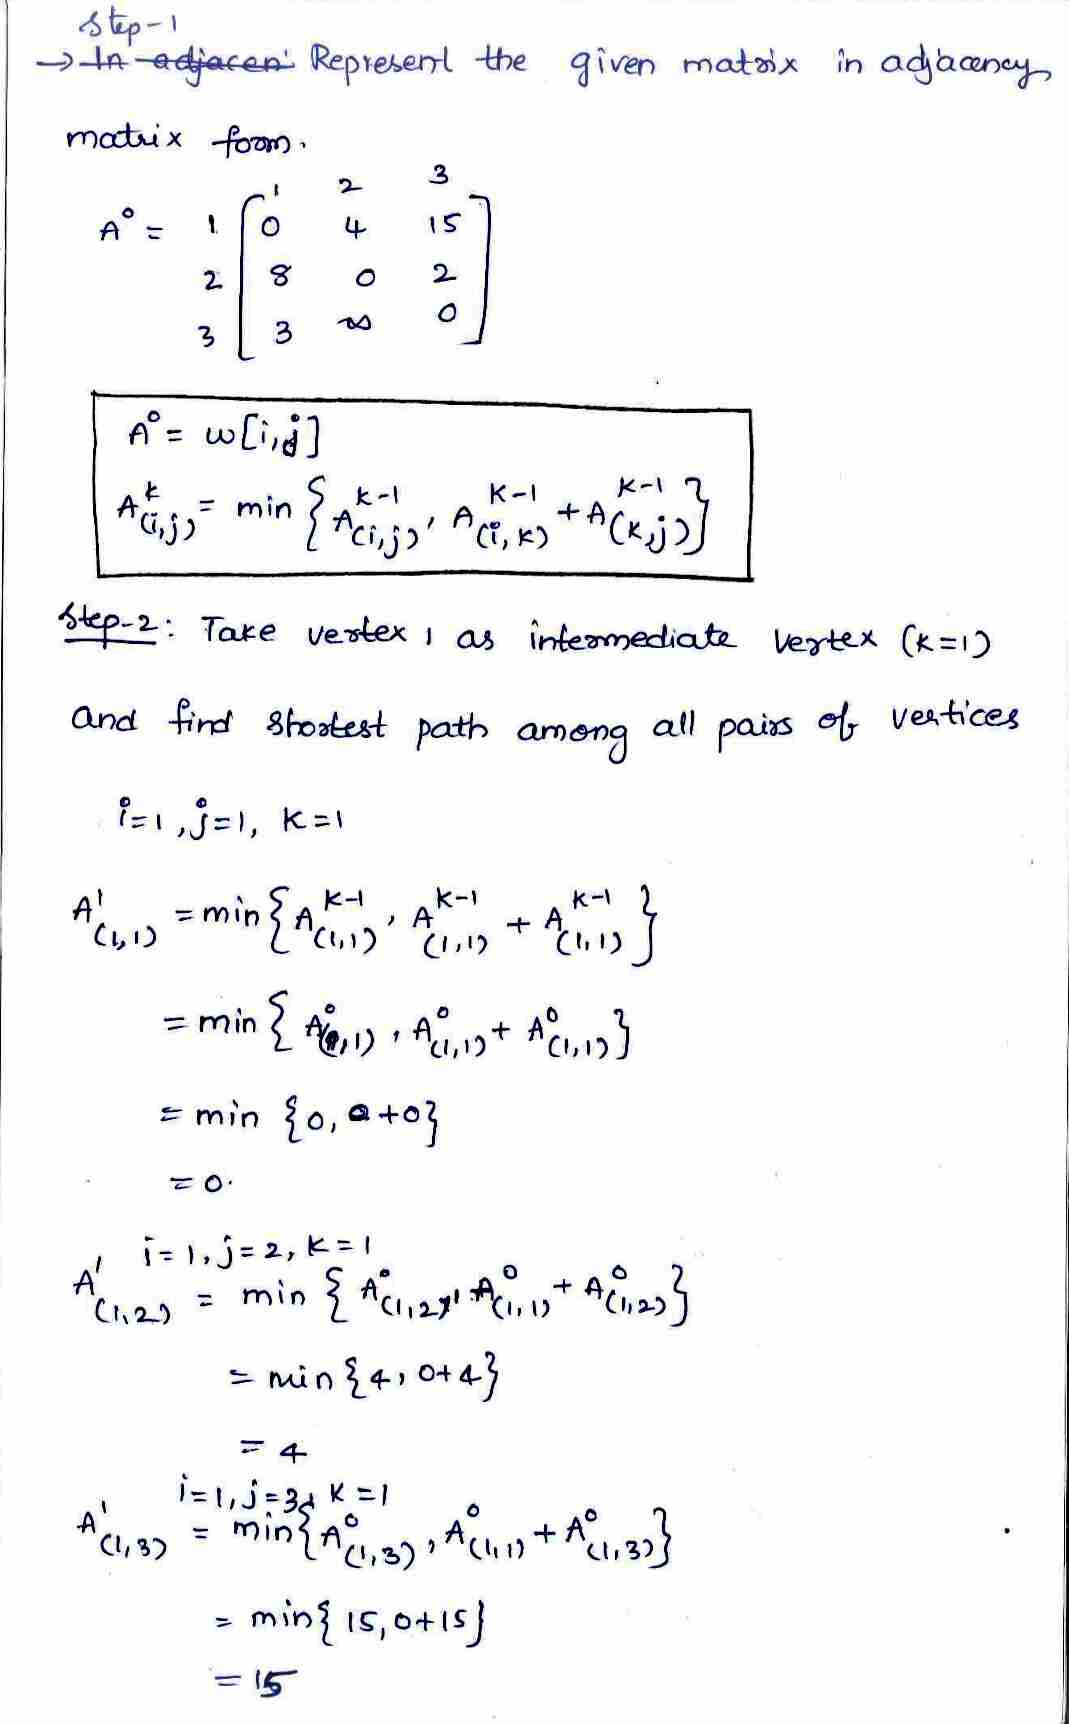 Step-1
→ In adjacen: Represent the given matrix in adjacency
matrix form.
1 2 3
A⁰ = 1 [ 0 4 15 ]
2 [ 8 0 2 ]
3 [ 3 ∞ 0 ]
A⁰ = w[i,j]
A^k(i,j) = min { A^k-1(i,j), A^k-1(i,k) + A^k-1(k,j) }
Step-2: Take vertex 1 as intermediate vertex (k=1)
and find shortest path among all pairs of vertices
i=1, j=1, k=1
A¹(1,1) = min { A^k-1(1,1), A^k-1(1,1) + A^k-1(1,1) }
= min { A⁰(1,1), A⁰(1,1) + A⁰(1,1) }
= min {0, 0+0}
= 0.
i=1, j=2, k=1
A¹(1,2) = min { A⁰(1,2), A⁰(1,1) + A⁰(1,2) }
= min {4, 0+4}
= 4
i=1, j=3, k=1
A¹(1,3) = min { A⁰(1,3), A⁰(1,1) + A⁰(1,3) }
= min {15, 0+15}
= 15